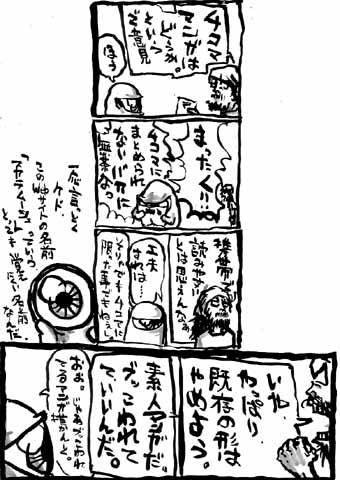 4コマ
マンガは
どうか。
という
ご意見
ほう
まったく!!
4コマに
まとめられ
ないバカに
無茶な
携帯で
読みやすい
とは思えんなぁ
工夫
すれば…
それでも4コマに
限った事でもねぇし
一応言っとく
ケド、
このWebサイトの名前
っていう
とっても覚えにくい名前
なんだ。
いや
やっぱり
既存の形は
やめよう。
素人マンガだ。
ブッこわれて
ていいんだ。
おぉ。じゃあブッこわれ
てるマンガ描かんと。